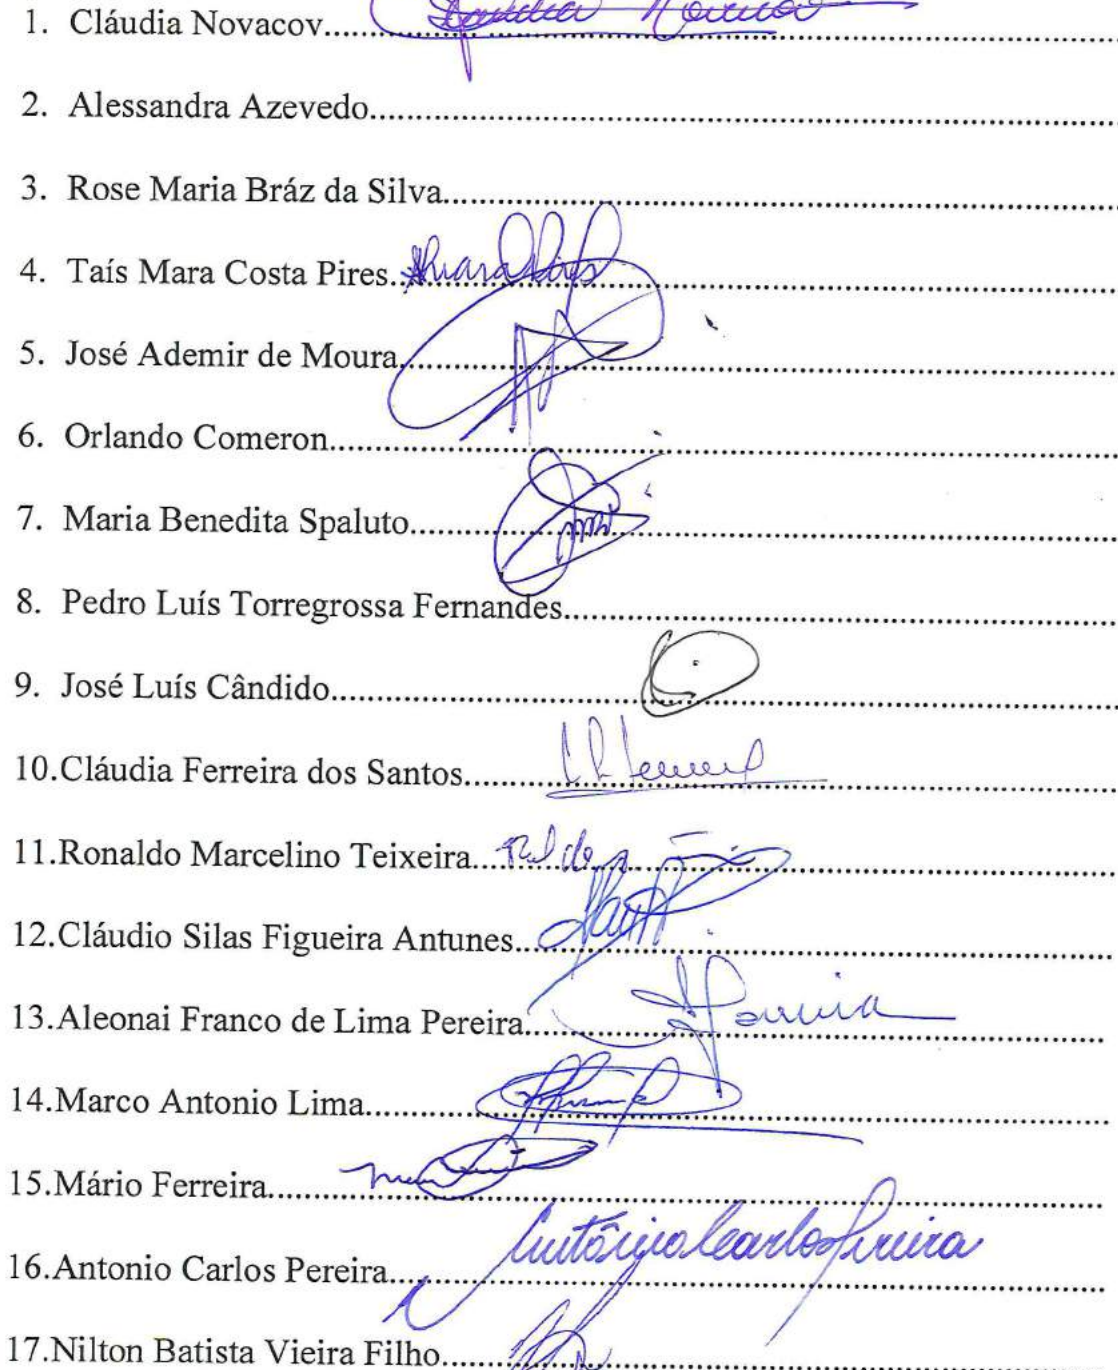 1. Cláudia Novacov
2. Alessandra Azevedo
3. Rose Maria Bráz da Silva
4. Taís Mara Costa Pires
5. José Ademir de Moura
6. Orlando Comeron
7. Maria Benedita Spaluto
8. Pedro Luís Torregrossa Fernandes
9. José Luís Cândido
10.Cláudia Ferreira dos Santos
11.Ronaldo Marcelino Teixeira
12.Cláudio Silas Figueira Antunes
13.Aleonai Franco de Lima Pereira
14.Marco Antonio Lima
15.Mário Ferreira
16.Antonio Carlos Pereira Antônio Carlos Pereira
17.Nilton Batista Vieira Filho